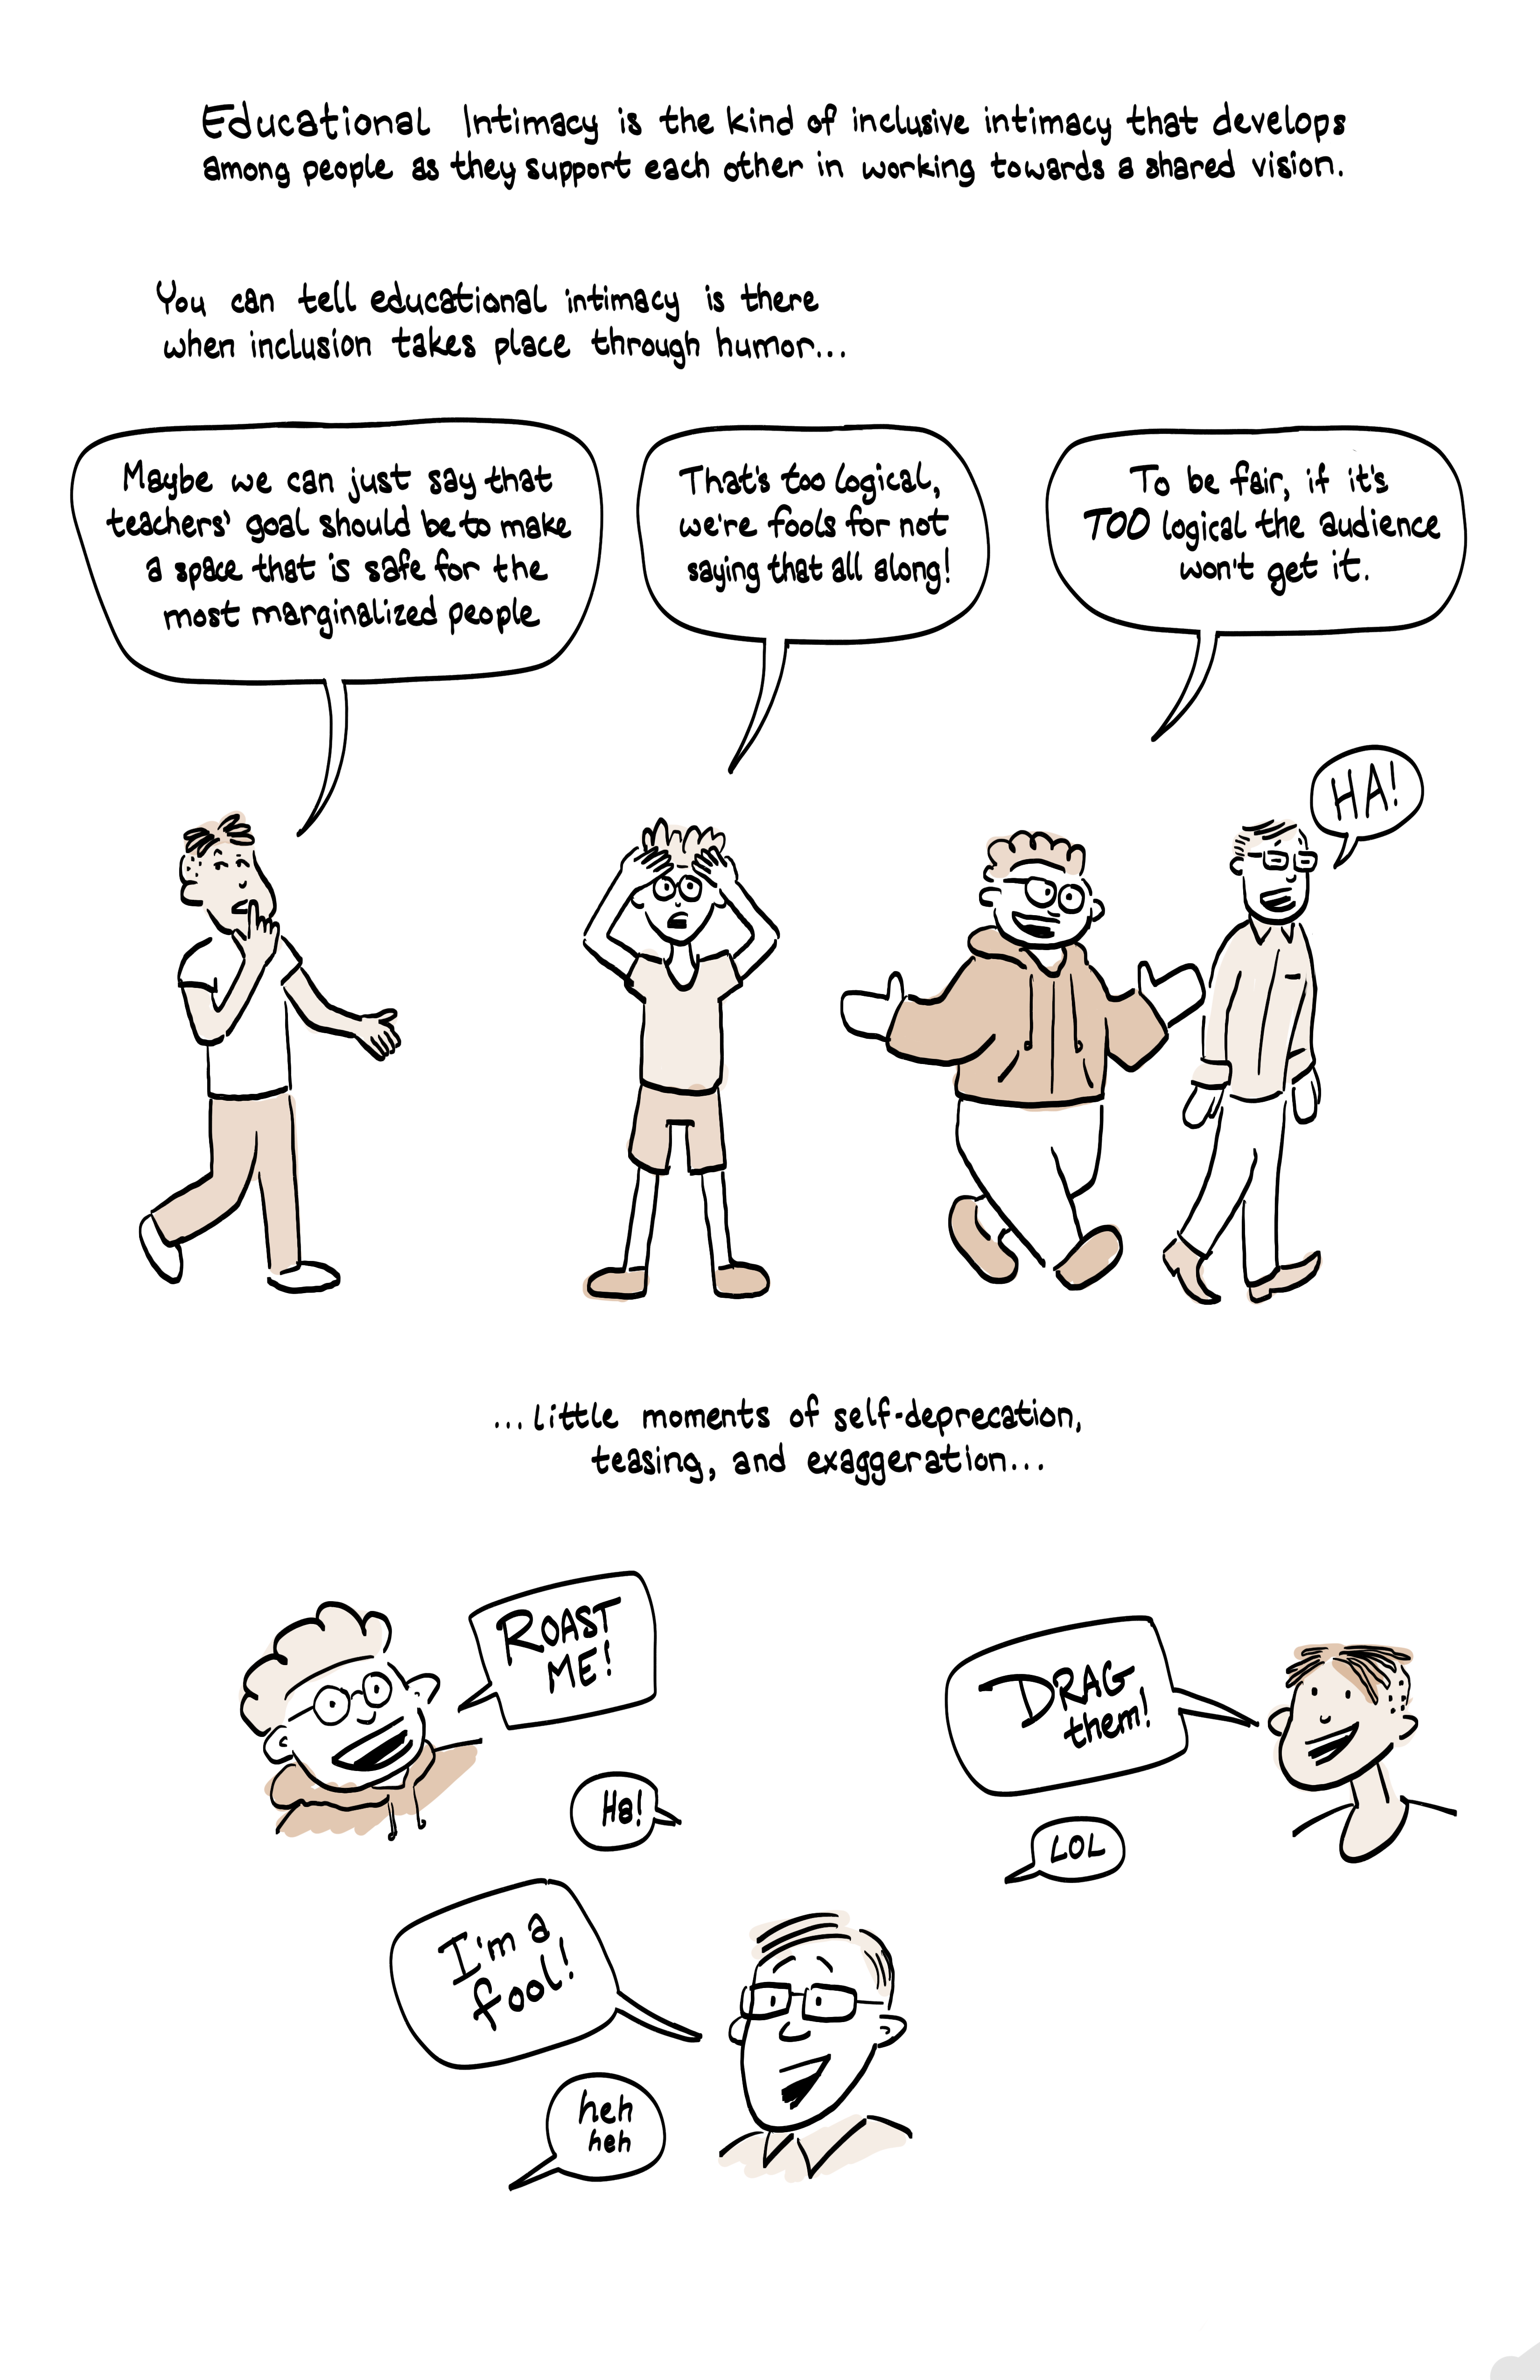 Educational Intimacy is the kind of inclusive intimacy that develops
among people as they support each other in working towards a shared vision.
You can tell educational intimacy is there
when inclusion takes place through humor...
Maybe we can just say that
teachers' goal should be to make
a space that is safe for the
most marginalized people
That's too logical,
we're fools for not
saying that all along!
To be fair, if it's
TOO logical the audience
won't get it.
HA!
...little moments of self-deprecation,
teasing, and exaggeration...
ROAST
ME!
Ha!
DRAG
them!
LOL
I'm a
fool!
heh
heh